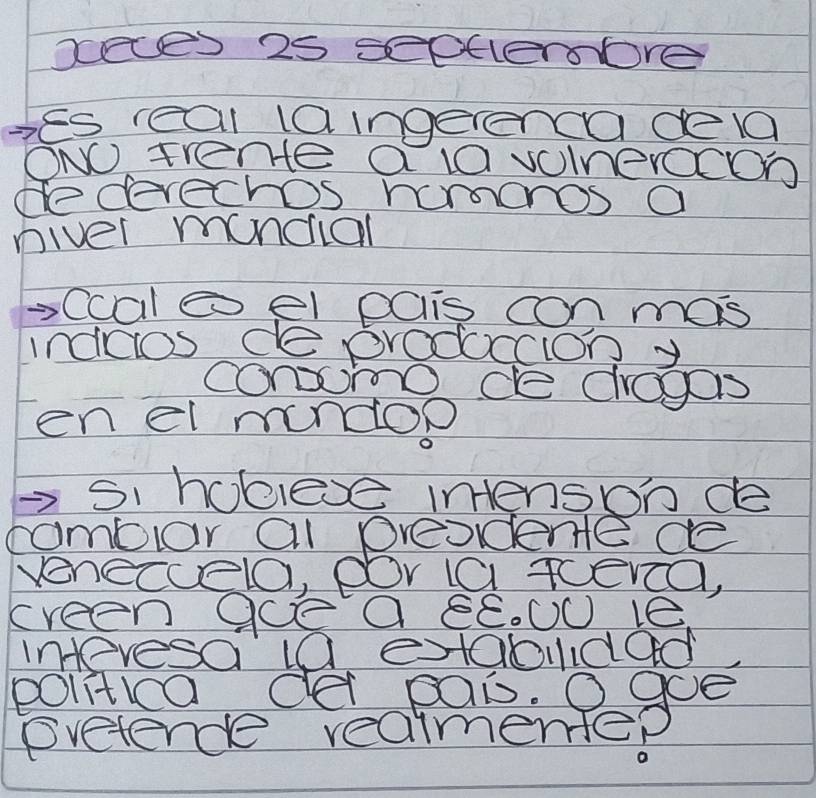 jueves 25 septiembre
→ Es real la ingerencia de la
ONU frente a la vulneracion
de derechos humanos a
nivel mundial
→ Cual es el país con más
indicios de producción y
consumo de drogas
en el mundo?
→ Si hubiese intensión de
cambiar al presidente de
venezuela, por la fuerza,
creen que a EE.UU le
interesa la estabilidad
política del país. O que
pretende realmente?